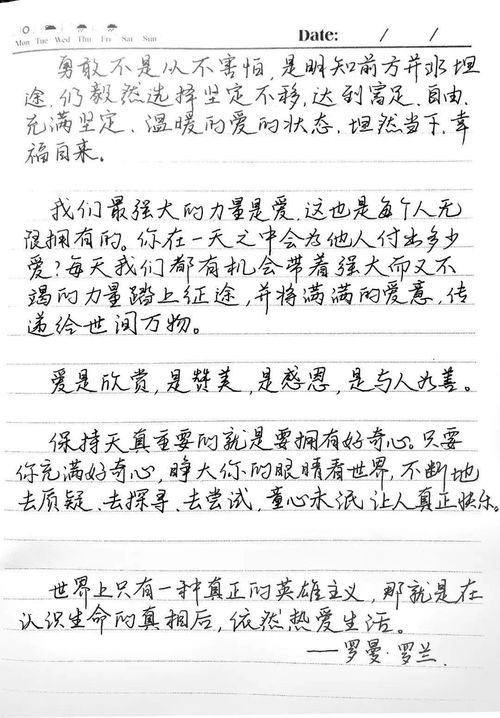 Mon Tue Wed Thu Fri Sat Sun
Date: / /
勇敢不是从不害怕，是明知前方并非坦
途，仍毅然选择坚定不移，达到富足、自由、
充满坚定、温暖的爱的状态，坦然当下，幸
福自来。
我们最强大的力量是爱，这也是每个人无
限拥有的。你在一天之中会为他人付出多少
爱？每天我们都有机会带着强大而又不
竭的力量踏上征途，并将满满的爱意，传
递给世间万物。
爱是欣赏，是赞美，是感恩，是与人为善。
保持天真重要的就是要拥有好奇心。只要
你充满好奇心，睁大你的眼睛看世界，不断地
去质疑、去探寻、去尝试，童心未泯，让人真正快乐。
世界上只有一种真正的英雄主义，那就是在
认识生命的真相后，依然热爱生活。
——罗曼·罗兰